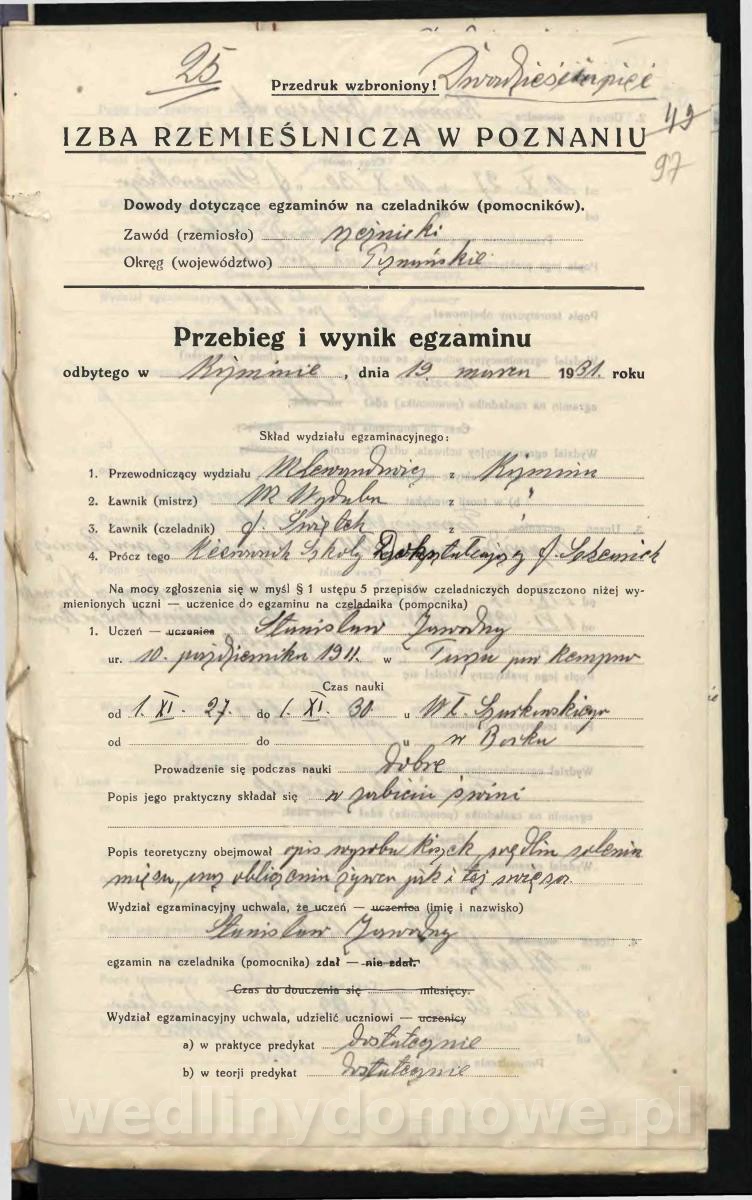 25
Przedruk wzbroniony! Dwadzieścia pięć
IZBA RZEMIEŚLNICZA W POZNANIU 49
97
Dowody dotyczące egzaminów na czeladników (pomocników).
Zawód (rzemiosło) rzeźnicki
Okręg (województwo) Poznańskie
Przebieg i wynik egzaminu
odbytego w Kępnie, dnia 19. marca 1931. roku
Skład wydziału egzaminacyjnego:
1. Przewodniczący wydziału z
2. Ławnik (mistrz) z "
3. Ławnik (czeladnik) z "
4. Prócz tego Kierownik Szkoły Dokształcającej
Na mocy zgłoszenia się w myśl § 1 ustępu 5 przepisów czeladniczych dopuszczono niżej wy-
mienionych uczni — uczenice do egzaminu na czeladnika (pomocnika)
1. Uczeń — uczenica Stanisław Zawodny
ur. 10. października 1911. w pow Kempno
Czas nauki
od 1. XI. 27. do 1. XI. 30 u Wł.
od do u w Borku
Prowadzenie się podczas nauki dobre
Popis jego praktyczny składał się w zabiciu świni
Popis teoretyczny obejmował opis wyrobu kiszek, wędlin solenia
mięsa, oraz obliczenia żywca jak i tej mięsa.
Wydział egzaminacyjny uchwala, że uczeń — uczenica (imię i nazwisko)
Stanisław Zawodny
egzamin na czeladnika (pomocnika) zdał — nie zdał.
Czas do douczenia się miesięcy.
Wydział egzaminacyjny uchwala, udzielić uczniowi — uczenicy
a) w praktyce predykat dostatecznie
b) w teorji predykat dostatecznie
wedlinydomowe.pl